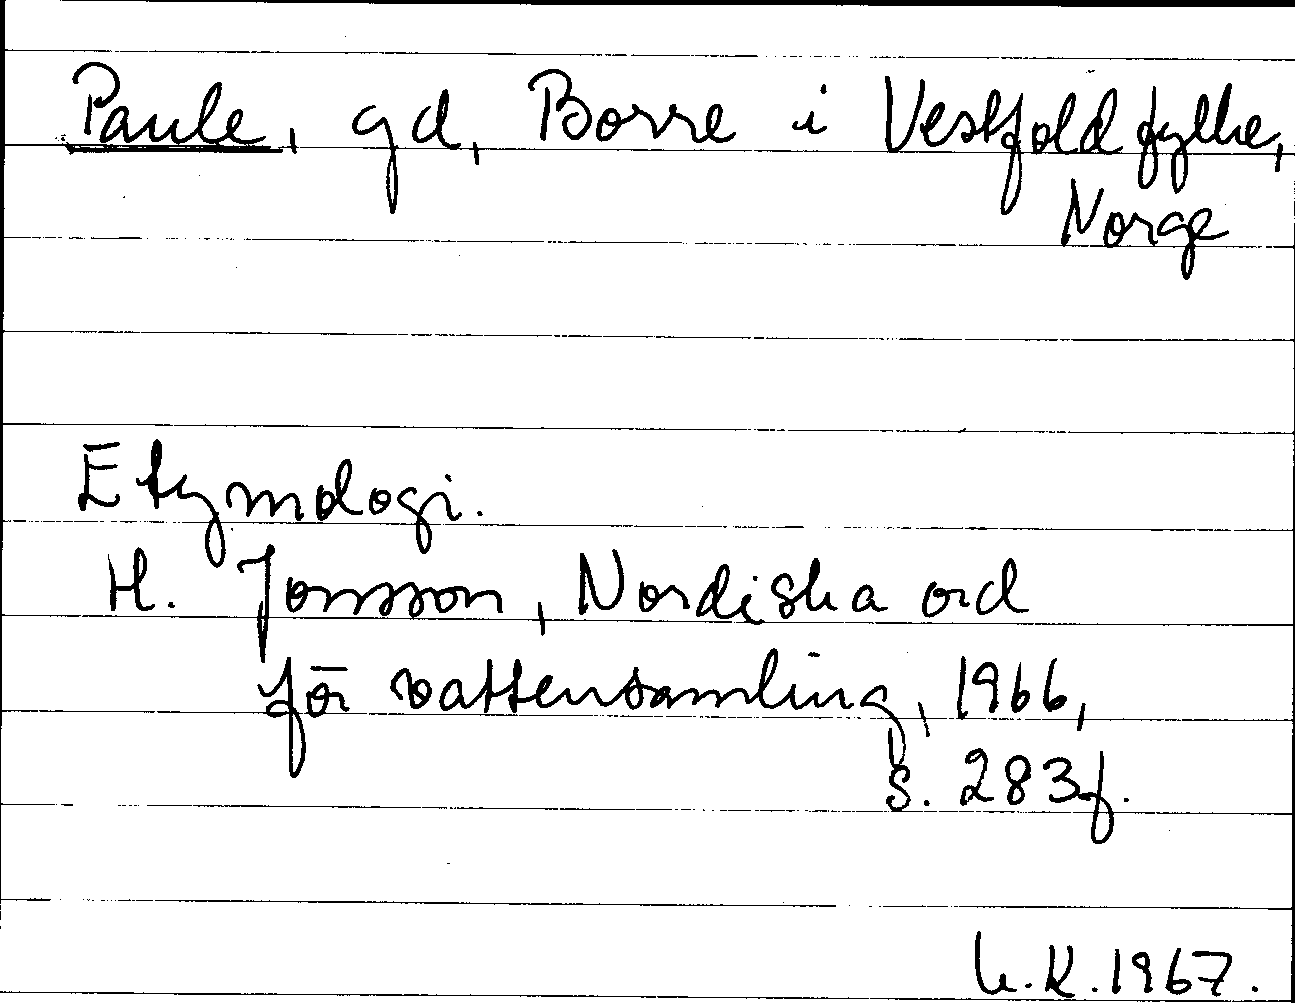 Paule, gd, Borre i Vestfold fylke,
Norge
Etymologi.
H. Jonsson, Nordiska ord
för vattensamling, 1966,
s. 283f.
L.K. 1967.